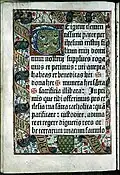 Te igitur clemen
tissime pater per
num nostrum supplices roga
mus et petimus: uti accepta
habeas et benedicas hec
dona hec munera hec sancta
sacrificia illibata. In primis
que tibi offerimus pro eccle
sia tua sancta catholica quam
pacificare et custodire, aduna
re et regere digneris toto or
be terrarum una cum famulo